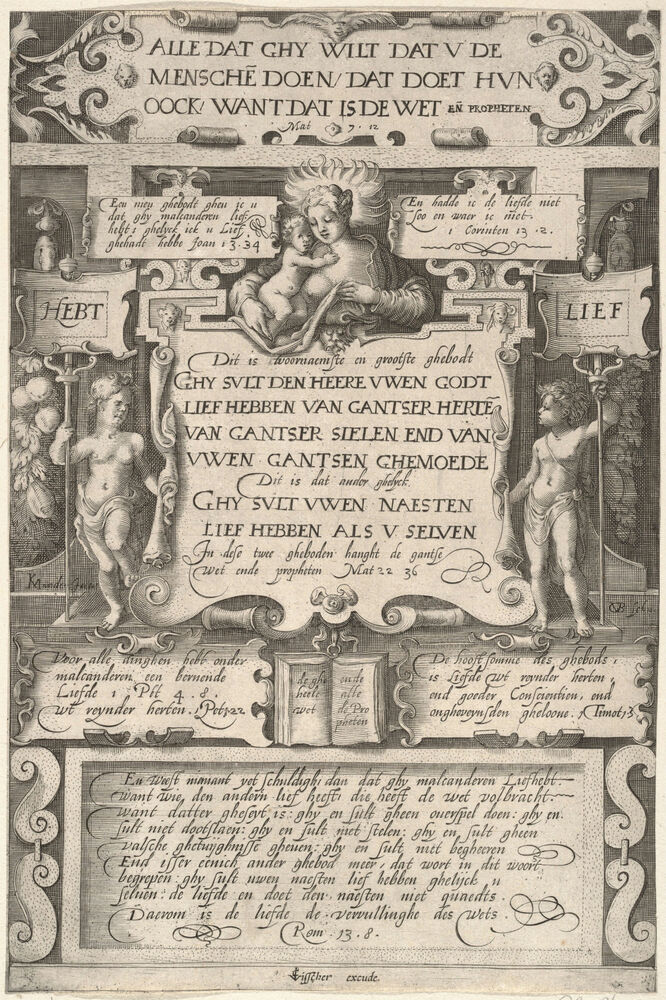 ALLE DAT GHY WILT DAT V DE
MENSCHẼ DOEN/ DAT DOET HVN
OOCK/ WANT DAT IS DE WET EÑ PROPHETEN
Mat 7. 12
Een nieu ghebodt gheu ic u
dat ghy malcanderen lief
hebt: ghelyck ick u Lief
ghehadt hebbe Joan 13.34
En hadde ic de liefde niet
soo en waer ic niet.
1 Corinten 13.2.
HEBT
LIEF
Dit is voornaemste en grootste ghebodt
GHY SVLT DEN HEERE VWEN GODT
LIEF HEBBEN VAN GANTSER HERTẼ
VAN GANTSER SIELEN END VAN
VWEN GANTSEN GHEMOEDE
Dit is dat ander ghelyck.
GHY SVLT VWEN NAESTEN
LIEF HEBBEN ALS V SELVEN
In dese twee gheboden hanght de gantse
Wet ende propheten Mat 22 36
KMander Inve
CB Sculp.
Voor alle dinghen hebt onder
malcanderen een bernende
Liefde 1 Pet 4.8.
wt reynder herten. 1 Pet 1.22
de ghe
heele
wet
ende
alle
de Pro
pheten
De hooft somme des ghebods,
is Liefde wt reynder herten,
end goeder Conscientien, end
ongheveynsden gheloove. 1 Timot 1,5
En Weest niemant yet schuldigh: dan dat ghy malcanderen Liefhebt.
Want wie, den andern lief heeft: die heeft de wet volbracht.
Want datter gheseyt is: ghy en sult gheen overspel doen: ghy en
sult niet dootslaen: ghy en sult niet stelen: ghy en sult gheen
valsche ghetuyghnisse gheven: ghy en sult niet begheeren
End isser eenich ander ghebod meer, dat wort in dit woort
begrepen: ghy sult uwen naesten lief hebben ghelijck u
selven: de liefde en doet den naesten niet quaedts.
Daerom is de liefde de vervullinghe des Wets.
Rom 13.8.
Visscher excude.